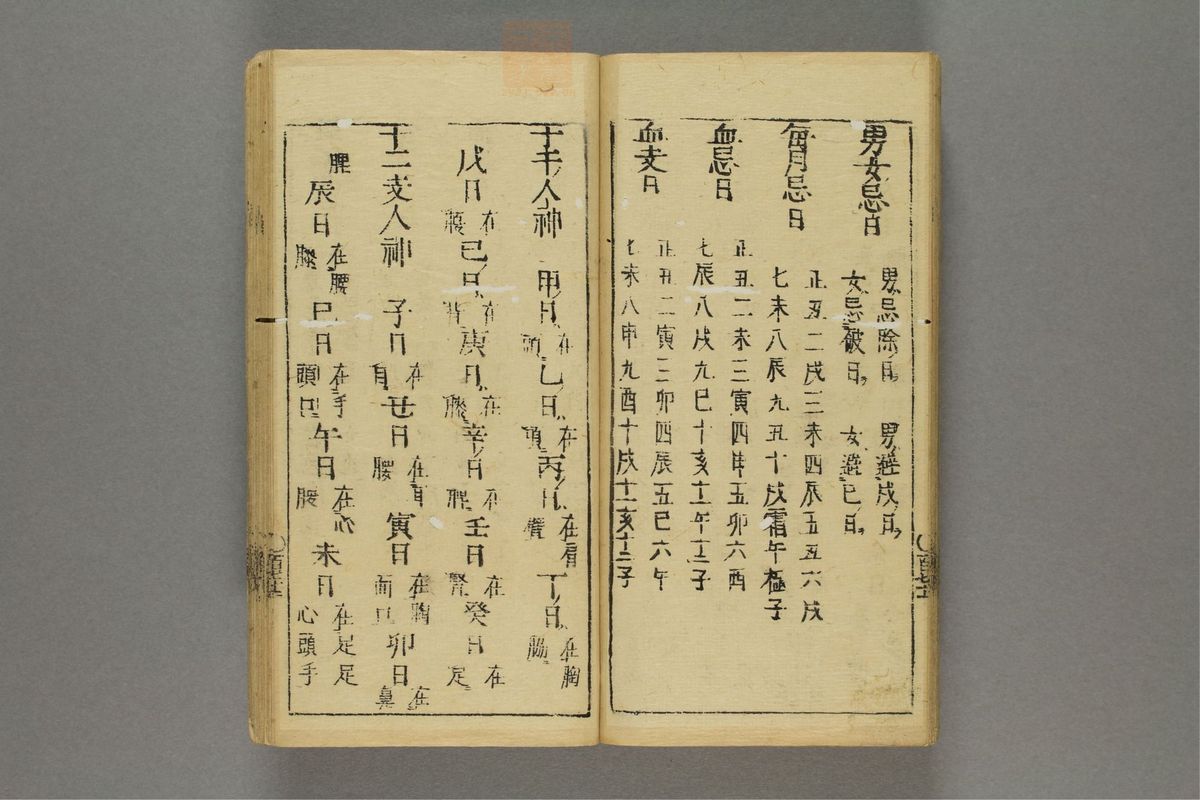 男女忌日
男忌除日 男避戌日
女忌破日 女避巳日
每月忌日
正丑二戌三未四辰五丑六戌
七未八辰九丑十戌霜午極子
血忌日
正丑二未三寅四申五卯六酉
七辰八戌九巳十亥十一午十二子
血支日
正丑二寅三卯四辰五巳六午
七未八申九酉十戌十一亥十二子
十干人神 甲日在頭乙日在項丙日在肩丁日在胸
戊日在己日在背庚日在膝辛日在脾壬日在腎癸日在足
十二支人神 子日在目丑日在耳腰寅日在胸面口卯日在鼻
脾辰日在腰膝巳日在手頭口午日在心腰未日在足足心頭手